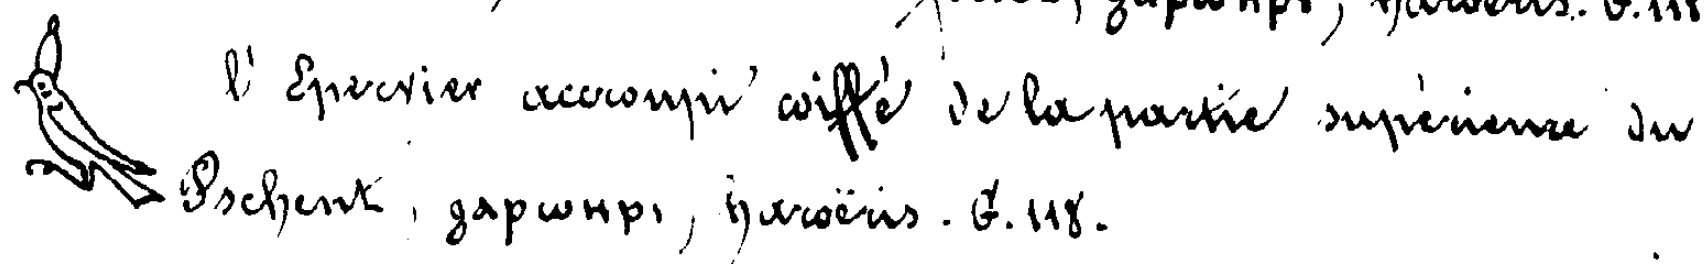 ϩⲁⲣⲱⲏⲣⲓ, haroëris. G. 118
l'Epervier accroupi coiffé de la partie supérieure du
Pschent, ϩⲁⲣⲱⲏⲣⲓ, haroëris. G. 118.